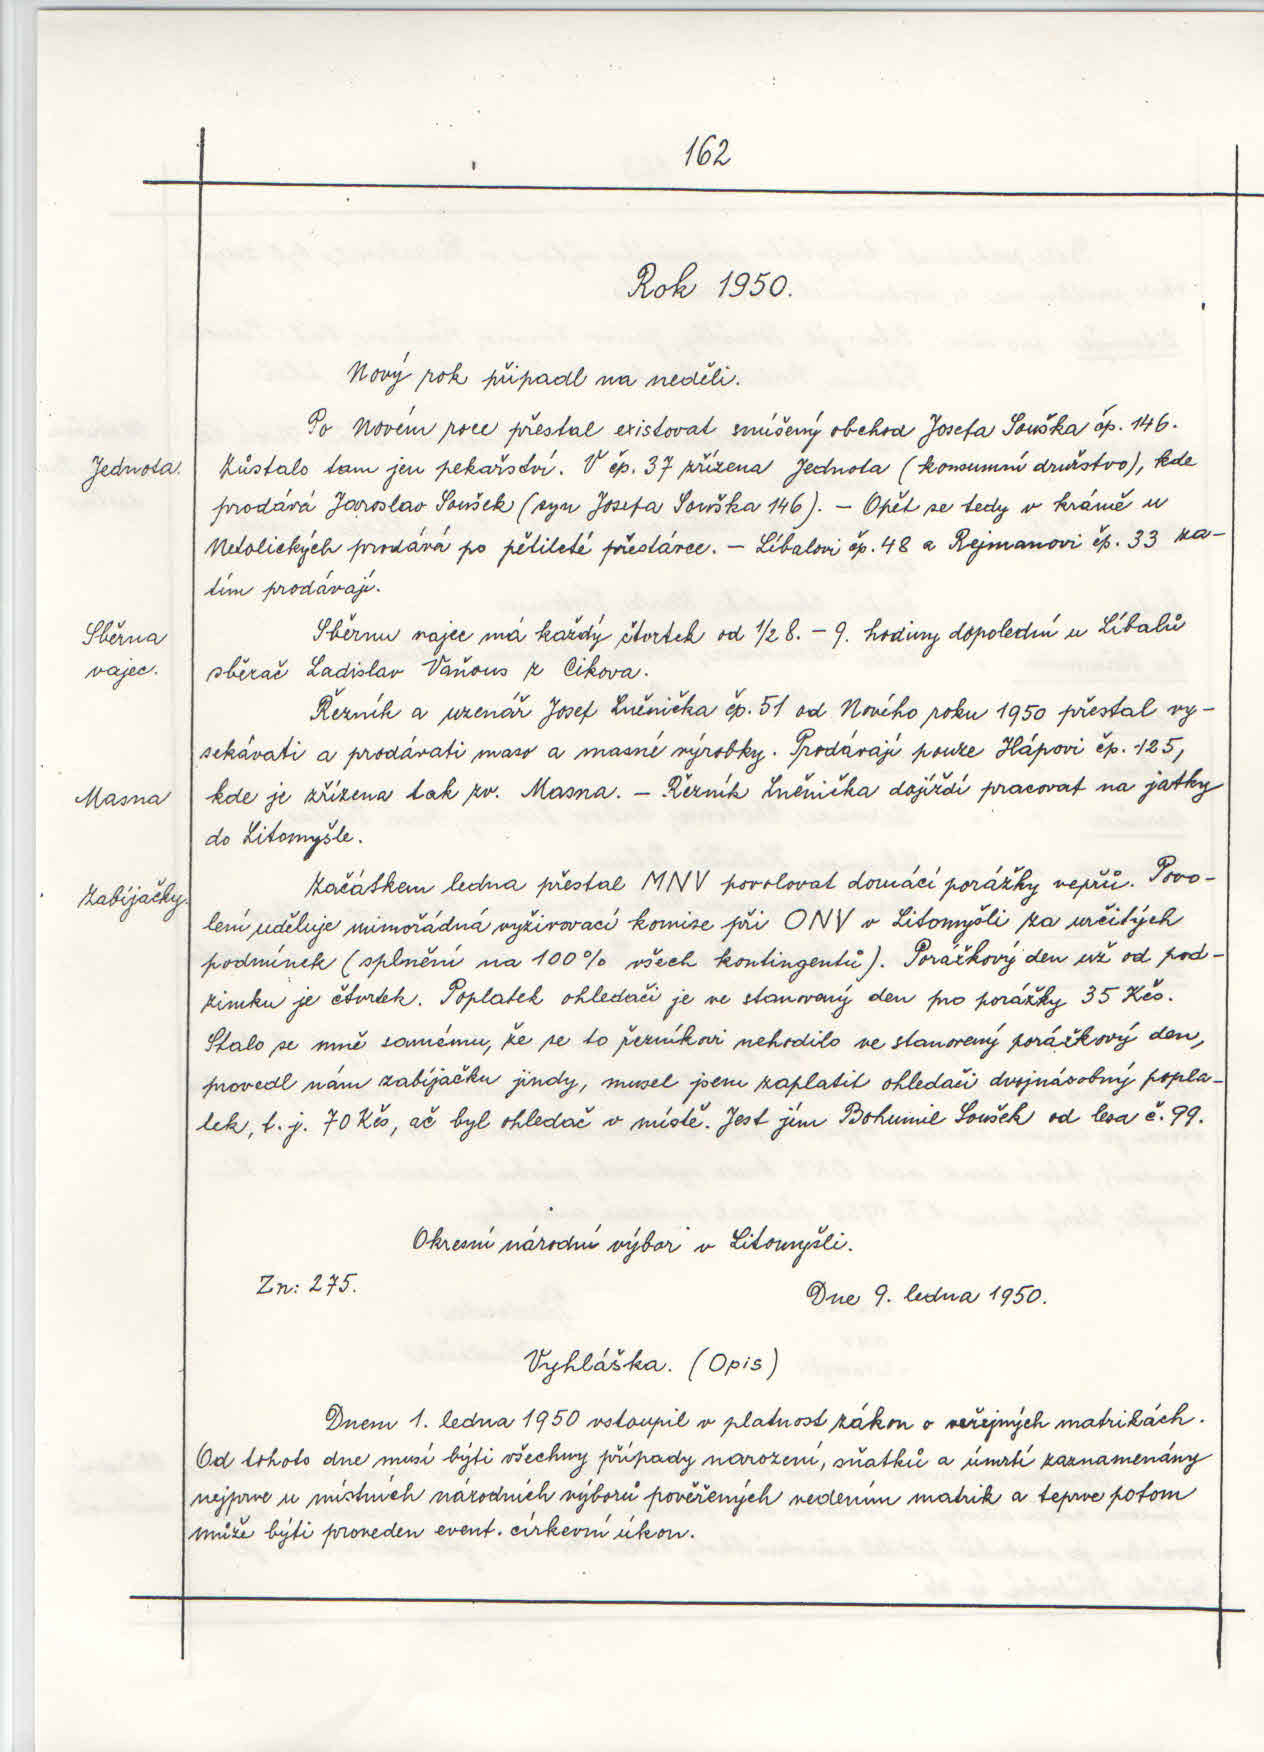 162
Rok 1950.
Nový rok připadl na neděli.
Po Novém roce přestal existovat smíšený obchod Josefa Souška čp. 146.
Jednota.
Zůstalo tam jen pekařství. V čp. 37 zřízena Jednota (konsumní družstvo), kde
prodává Jaroslav Soušek (syn Josefa Souška 146). – Opět se tedy v krámě u
Netolických prodává po pětileté přestávce. – Líbalovi čp. 48 a Rejmanovi čp. 33 za-
tím prodávají.
Sběrna
vajec.
Sběrnu vajec má každý čtvrtek od 1/2 8. – 9. hodiny dopolední u Líbalů
sběrač Ladislav Vaňous z Cikova.
Řezník a uzenář Josef Lněnička čp. 51 od Nového roku 1950 přestal vy-
sekávati a prodávati maso a masné výrobky. Prodávají pouze Hápovi čp. 125,
Masna
kde je zřízena tak zv. Masna. – Řezník Lněnička dojíždí pracovat na jatky
do Litomyšle.
Zabíjačky.
Začátkem ledna přestal MNV povolovat domácí porážky vepřů. Povo-
lení uděluje mimořádná vyživovací komise při ONV v Litomyšli za určitých
podmínek (splnění na 100% všech kontingentů). Porážkový den už od pod-
zimku je čtvrtek. Poplatek ohledači je ve stanovený den pro porážky 35 Kčs.
Stalo se mně samému, že se to řezníkovi nehodilo ve stanovený porážkový den,
provedl nám zabíjačku jindy, musel jsem zaplatit ohledači dvojnásobný popla-
tek, t. j. 70 Kčs, ač byl ohledač v místě. Jest jím Bohumil Soušek od lesa č. 99.
Okresní národní výbor v Litomyšli.
Zn: 275.
Dne 9. ledna 1950.
Vyhláška. (Opis)
Dnem 1. ledna 1950 vstoupil v platnost zákon o veřejných matrikách.
Od tohoto dne musí býti všechny případy narození, sňatků a úmrtí zaznamenány
nejprve u místních národních výborů pověřených vedením matrik a teprve potom
může býti proveden event. církevní úkon.